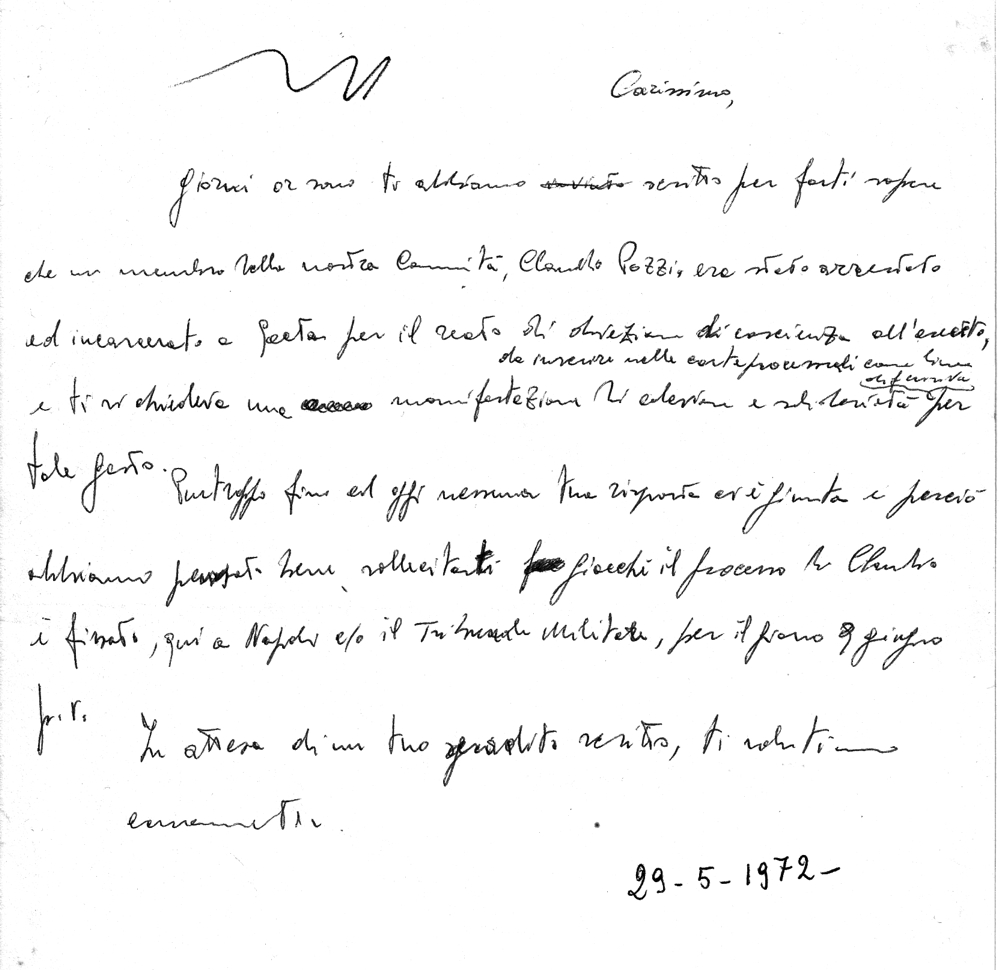 Carissimo,
Giorni or sono ti abbiamo scritto per farti sapere
che un membro della nostra Comunità, Claudio Pozzi, era stato arrestato
ed incarcerato a Gaeta per il reato di obiezione di coscienza all'esercito,
da inserire nelle carte processuali come linea
difensiva
e ti si chiedeva una manifestazione di adesione e solidarietà per
tale gesto.
Purtroppo fino ad oggi nessuna tua risposta ci è giunta e perciò
abbiamo pensato bene sollecitarti giacchè il processo di Claudio
è fissato, qui a Napoli c/o il Tribunale Militare, per il giorno 9 giugno
p.v.
In attesa di un tuo gradito scritto, ti salutiamo
caramente.
29-5-1972-